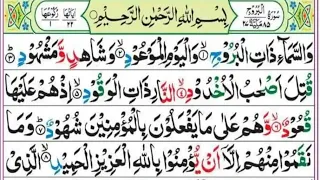 بِسْمِ اللهِ الرَّحْمٰنِ الرَّحِيْمِ
وَالسَّمَآءِ ذَاتِ الْبُرُوْجِ ۙ﴿۱﴾ وَالْيَوْمِ الْمَوْعُوْدِ ۙ﴿۲﴾ وَشَاهِدٍ وَّمَشْهُوْدٍ ؕ﴿۳﴾
قُتِلَ اَصْحٰبُ الْاُخْدُوْدِ ۙ﴿۴﴾ النَّارِ ذَاتِ الْوَقُوْدِ ۙ﴿۵﴾ اِذْ هُمْ عَلَيْهَا
قُعُوْدٌ ۙ﴿۶﴾ وَّهُمْ عَلٰى مَا يَفْعَلُوْنَ بِالْمُؤْمِنِيْنَ شُهُوْدٌ ؕ﴿۷﴾ وَمَا
نَقَمُوْا مِنْهُمْ اِلَّاۤ اَنْ يُّؤْمِنُوْا بِاللهِ الْعَزِيْزِ الْحَمِيْدِ ۙ﴿۸﴾ الَّذِيْ